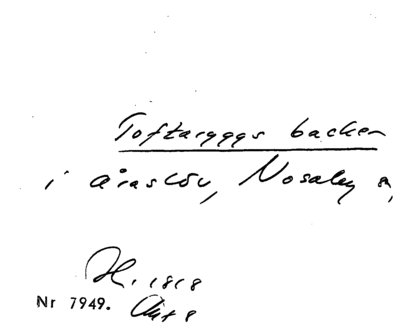 Toftaryggs backen
i Araslöv, Nosaby sn,
H. 1818
Nr 7949. Akt 8